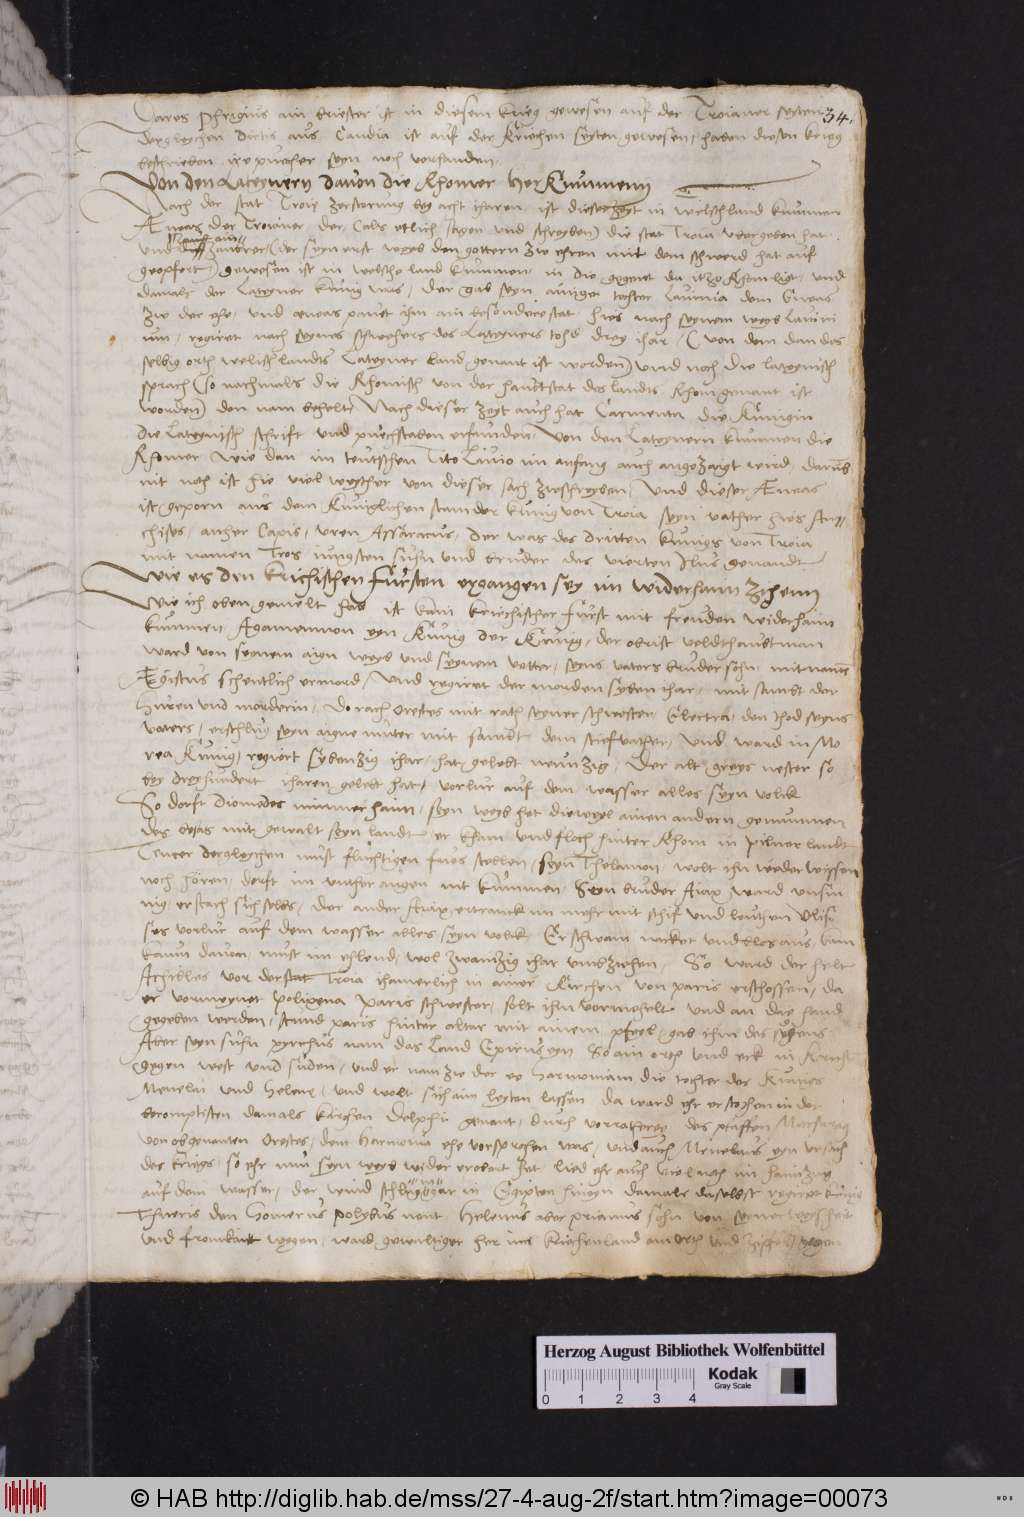 34.
Dares Phrigius ain briester ist in diesem krieg gewesen auf der Troianer seyten
dergleychen Dictis aus Candia ist auf der Kriechen seyten gewesen, haben diesen krieg
beschrieben ire puecher seyn noch vorhanden.
Von den Lateynern davon die Rhomer herkummenn
Nach der stat Troie zerstorung bey acht iharen, ist dieser zeyt in welschland kummen
Æneas der Troianer, der (als etlich sagen und schreyben) die stat Troia ubergeben hat
und zaubrer (der seyn erst weyb den gottern zu ehren mit dem schwerd hat auf
geopfert) gewesen ist in welsche land kummen, in die gegent da itzo Rhom ligt, und
damals der Lateyner kunig was, Der gab seyn ainige tochter Lavinia dem Eneas
zu der ehe, und æneas pauet ihm ain besondere stat, hies nach seynem weyb Lavini
um, regiret nach seynes schwehers des Lateyners tohd drey ihar, (von dem dan das
selbig orth welisch landts Lateyner land genant ist worden) und noch die lateynisch
sprach (so nachmals die Rhomisch von der hauptstat des landts Rhom genant ist
worden) den nam behelt, Nach dieser zeyt auch hat Carmenta die Kunigin
die Lateynisch schrift und puechstaben erfunden, Von den Lateynern kummen die
Rhomer wie dan im teutschen Tito Livio im anfang auch angezaigt wird, darumb
nit noth ist hie viel weyther von dieser sach zu schreyben, Und dieser Æneas
ist geporn aus dem kuniglichen stam der kunig von Troia seyn vather hies An
chises, anher Capis, uren Assaracus, der was des dritten kunigs von Troia
mit namen Tros iungsten suhn und bruder des vierten Ilus genandt
Wie es den krichischen Fürsten ergangen sey im widerhaim zihenn
Wie ich oben gemelt hab ist kain kriechischer fürst mit freuden widerhaim
kummen, Agamemnon eyn Kunig der König, der obrist veldthaubtman
ward von seynem aign weyb und seynem vetter, seyns vaters bruder sohn mit namen
Ægistus schentlich ermord, Und regieret der morden syben ihar, mit sambt der
huren und morderin, Do rach Orestes mit rath seyner schwester Electra, den thod seyns
vaters, erschlug seyn aigne muter mit sambt dem stiefvather, Und ward in Mo
rea Kunig, regiert sybenzig ihar, hat gelebt neunzig, Der alt greys nestor so
bey dreyhundert iharen gelebt hat, verlur auf dem wasser alles seyn volck
So dorft Diomedes nimmer haim, seyn weyb het dieweyl ainen andern genummen
des besas mit gewalt seyn landt, er kham und floch hinter Rhom in pilner landt
Teucer dergleychen must fluchtigen fues stellen, seyn Thelamon, wolt ihn weder wissen
noch hören, dorft im unther augen nit kummen, Seyn bruder Aiax ward unsin
nig, erstach sich selbs, der ander Aiax ertranck im mehr mit schif und leuthen Ulis
ses verlur auf dem wasser alles seyn volck Er schwam nacket und blos aus, kam
kaum davon, must im ehlend, wol zwanzig ihar umbziehen, So ward der helt
Achilles vor der stat Troia ihamerlich in ainer Kirchen von paris erschossen, da
er vermeynet Polixena Paris schwester, solt ihm vermehelt und an die hand
gegeben werden, stund paris hinter altar mit ainem pfeyl, gab ihm des segens
Aber seyn suhn pyrrhus nam das land Epirus eyn So ain orth und eck in Krieche
gegen west und suden, und er nam zu der ee Harmoniam die tochter des Kunigs
Menelai und Helene, und wolt sich ain leyten lassen da ward ehr erstochen in der
beromptisten damals kirchen Delphi genant, durch verratherey des pfaffen
von obgenanten Orestes, dem Harmonia ehe versprochen was, und auch Menelaus eyn ursach
des kriegs, so ehr nun seyn weyb wider erobert het, lied ehr auch viel noth im haimzug
auf dem wasser, der wind schlug gar in Egipten hineyn damals daselbst regiret kunig
Thueris den Homerus Polybus nent, Helenus aber priamus sohn von seyner weysheit
und fromkait wegen, ward gewaltiger her im kriechenland am orth und zipfel gegen
Herzog August Bibliothek Wolfenbüttel
Kodak
Gray Scale
0 1 2 3 4
© HAB http://diglib.hab.de/mss/27-4-aug-2f/start.htm?image=00073